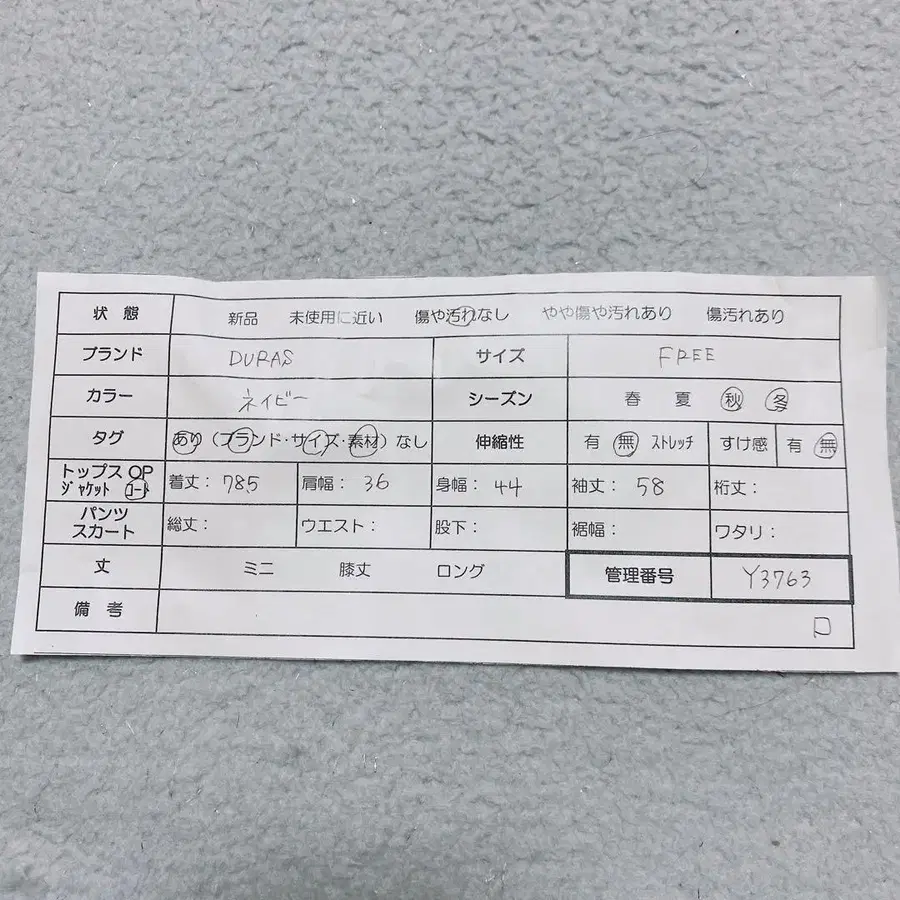 状態 新品 未使用に近い 傷や汚れなし やや傷や汚れあり 傷汚れあり
ブランド DURAS サイズ FREE
カラー ネイビー シーズン 春 夏 秋 冬
タグ あり(ブランド・サイズ・素材)なし 伸縮性 有 無 ストレッチ すけ感 有 無
トップス OP
ジャケット コート
着丈: 78.5 肩幅: 36 身幅: 44 袖丈: 58 裄丈:
パンツ
スカート
総丈: ウエスト: 股下: 裾幅: ワタリ:
丈 ミニ 膝丈 ロング 管理番号 Y3763
備考